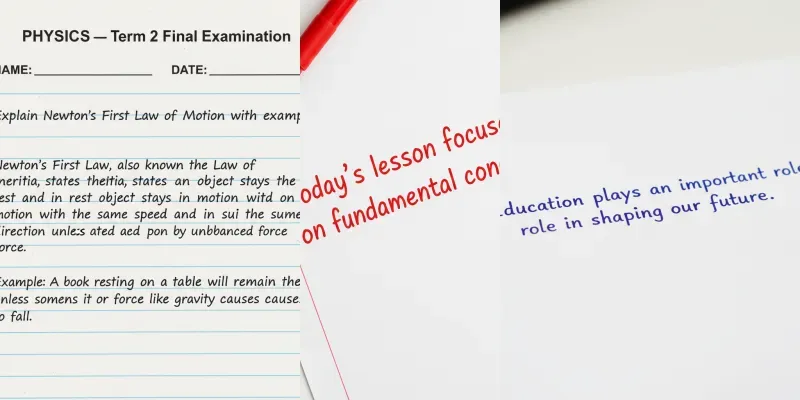 PHYSICS — Term 2 Final Examination
NAME: DATE:
Explain Newton's First Law of Motion with examp
Newton's First Law, also known the Law of
neritia, states theltia, states an object stays the
est and in rest object stays in motion witd on
motion with the same speed and in sui the sume
direction unless ated aed pon by unbbanced force
force.
Example: A book resting on a table will remain the
unless somens it or force like gravity causes cause
to fall.
oday's lesson focus
on fundamental con
Education plays an important role
role in shaping our future.